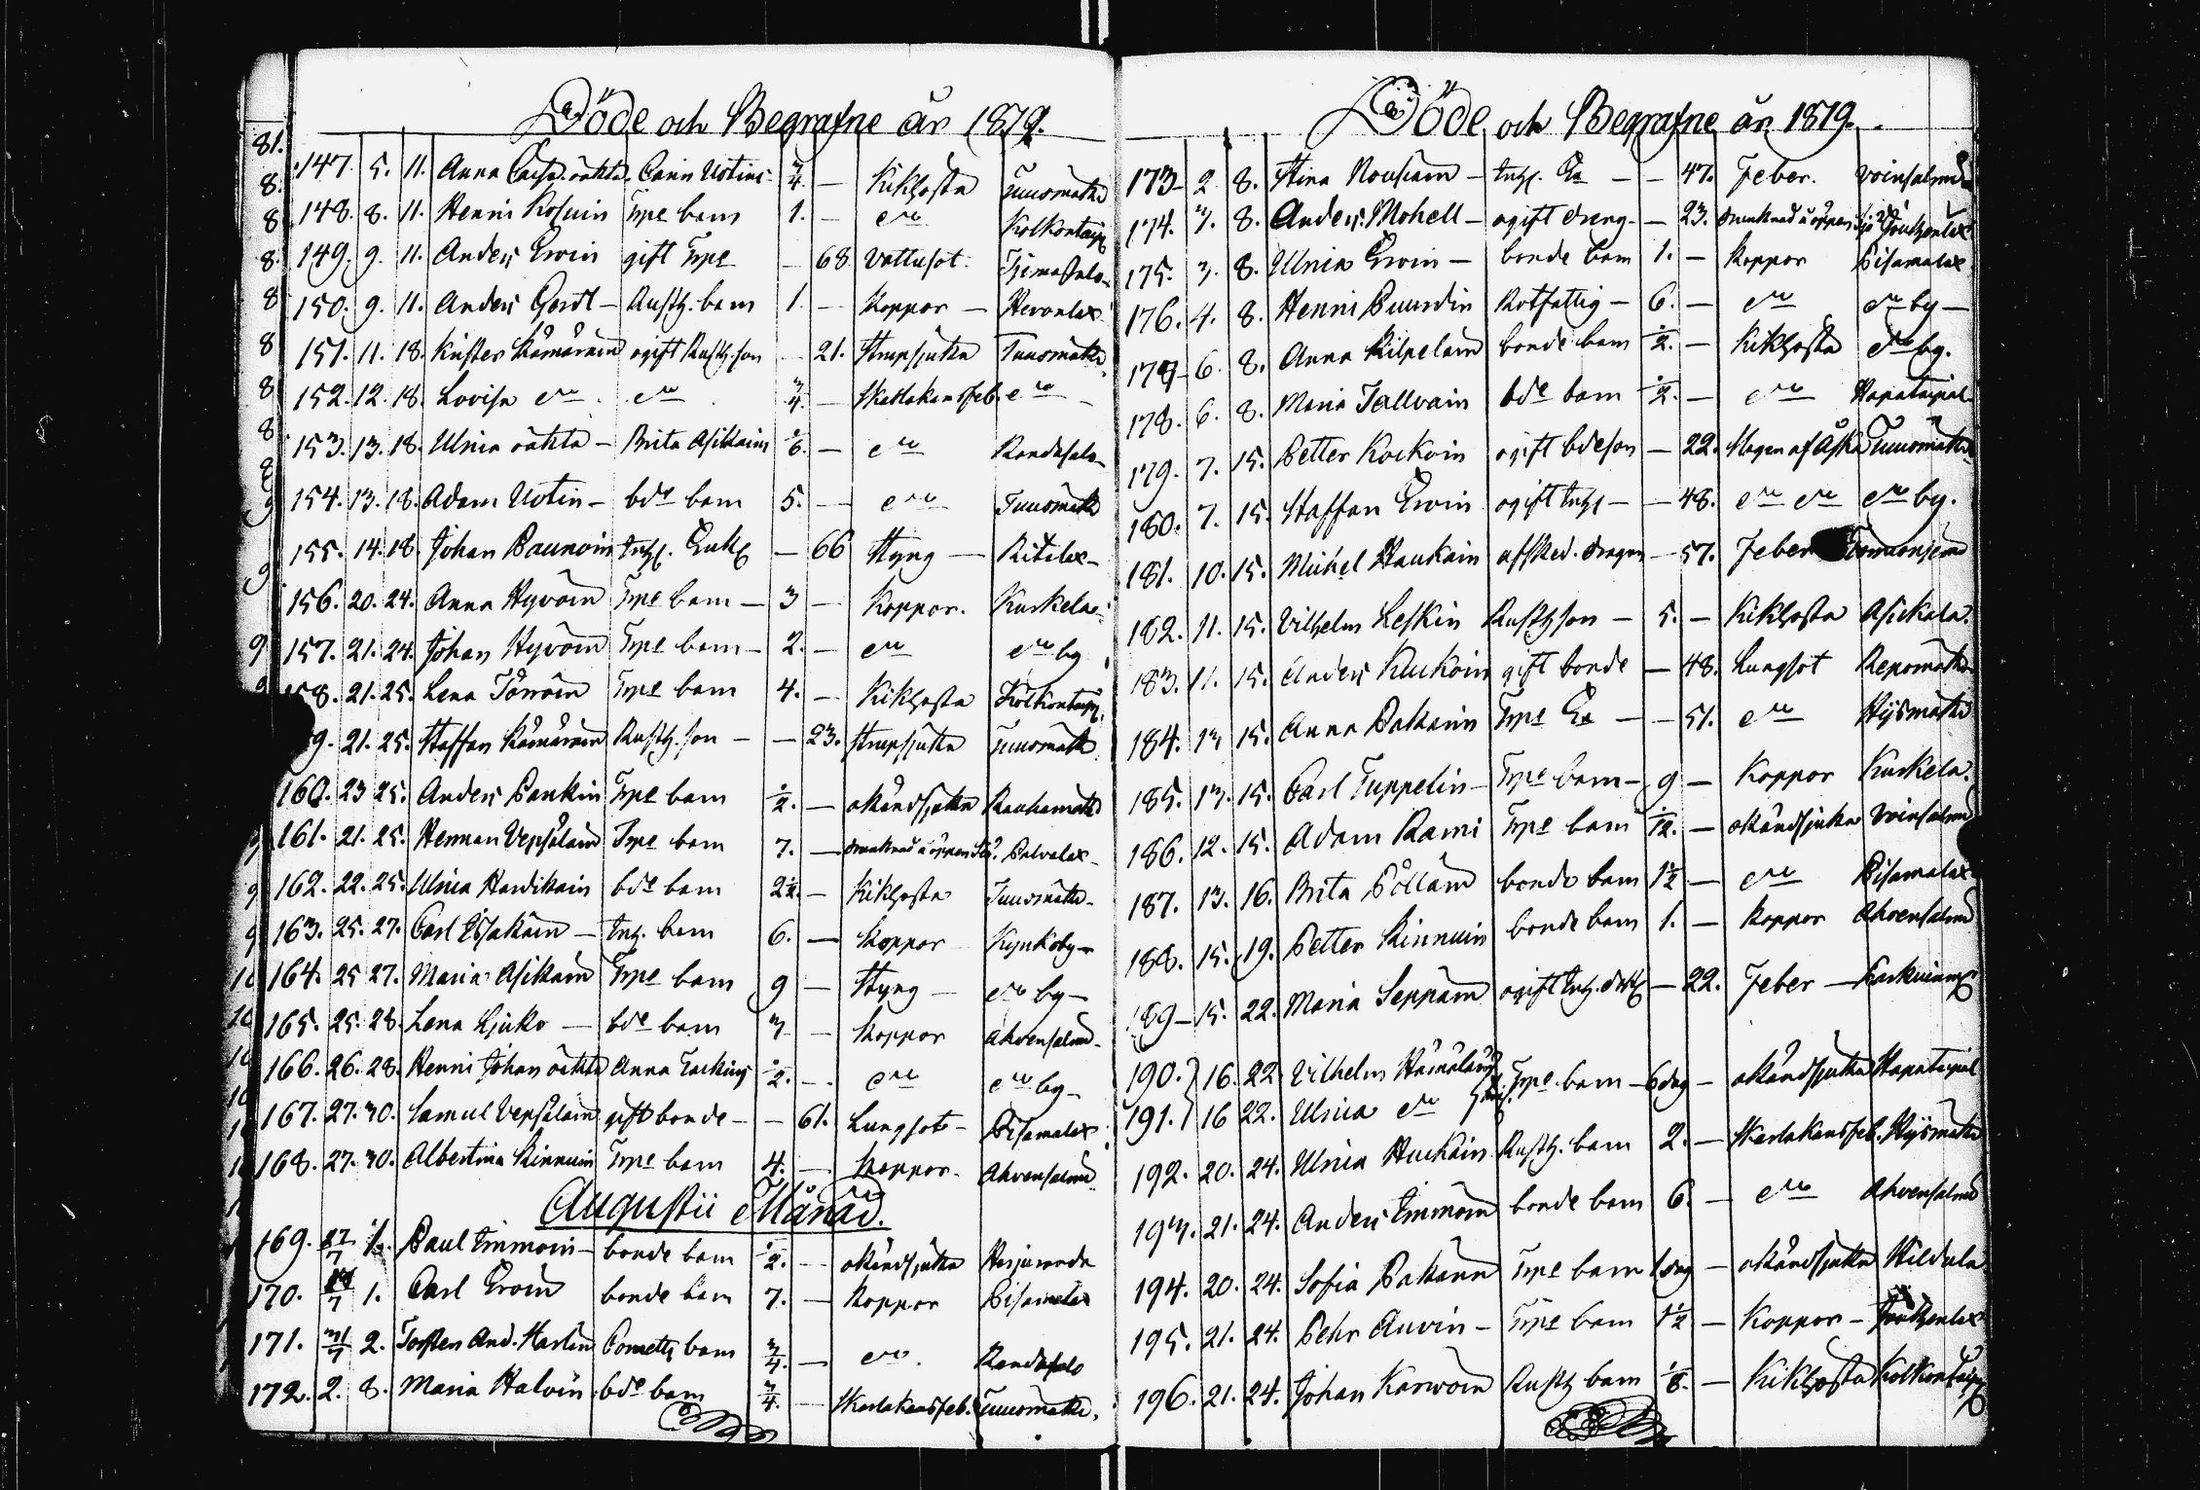 Döde och Begrafne år 1879.
147. 5. 11. Anna Cajsa oäkta Carin Ustins 3/4. — Kikhosta Tuusmäki
148. 8. 11. Henric Kosuin Trpe barn 1. — dito Kolkontaip.
149. 9. 11. Anders Ervin gift Trpe — 68 Vattusot.
150. 9. 11. Anders Rusth. barn 1. — Koppor — Hevonlax
151. 11. 18. Krister Hämäräin ogift Rusth. son — 21. Strupsjuka Tuusmäki
152. 12. 18. Lovisa dito dito 3/4. — Skarlakansfeb. dito
153. 13. 18. Ulrica oäkta — Brita Asikains 1/6. — dito Randasalo
154. 13. 18. Adam Ustin — bde barn 5. — dito Tuusmäki
155. 14. 18. Johan Paunoin Inh. Enkl — 66 Styng — Ritalax
156. 20. 24. Anna Hyvöin Trpe barn — 3 — Koppor. Kurkela
157. 21. 24. Johan Hyvöin Trpe barn — 2. — dito dito by
158. 21. 25. Lena Törröin Trpe barn 4. — Kikhosta Kolkontaip.
9. 21. 25. Staffan Hämäräin Rusth. son — — 23. Strupsjuka Tuusmäki
160. 23 25. Anders Pankin Trpe barn 1/2. — okänd sjukd Rauhamäki
161. 21. 25. Herman Vepsäläin Trpe barn 7. — drunknad i öppen Sjö. Palvalax
162. 22. 25. Ulrica Hardikain bde barn 2 1/2. — Kikhosta Tuusmäki
163. 25. 27. Carl — Inh. barn 6. — Koppor Kynkäby
164. 25 27. Maria Asikain Trpe barn 9 — Styng — dito by —
165. 25. 28. Lena Ljuko — bde barn 3 — Koppor Ahvensalmi
166. 26. 28. Henric Johan oäkta Anna 1/2. — dito dito by —
167. 27. 30. Samul Vepsäläin gift bonde — — 61. Lungsot — Pisamalax
168. 27. 30. Albertina Kinnuin Trpe barn 4. — Koppor. Ahvensalmi
Augustii Månad.
169. 27/7 1/8. Paul Immoin — bonde barn 1/2. — okänd sjukd Harjuranda
170. 1. Carl Ervin bonde barn 7. — Koppor Pisamalax
171. 31/7 2. Torsten And. Harlin barn 3/4. — dito. Randasalo
172. 2. 8. Maria Halvin bde barn 3/4. — Skarlakansfeb. Tuusmäki.
Döde och Begrafne år 1879.
173 — 2 8. Stina Nousiain — Inh. Ea — — 47. Feber. Voinsalmi
174. 3. 8. Anders Mohell — ogift dreng — — 23. drunknad i öppen Sjö Joukenlax
175. 3. 8. Ulrica Ervin — bonde barn 1. — Koppor Pisamalax
176. 4. 8. Henric Puurdin Rotfattig — 6. — dito dito by —
177 — 6. 8. Anna Kilpeläin bonde barn 1/2. — Kikhosta dito by.
178. 6. 8. Maria Tallvain bde barn 1/2. — dito Hapataipal
179. 7. 15. Petter Kockoin ogift bdeson — 22. Slagen af Åska Tuusmäki
180. 7. 15. Staffan Ervin ogift Inh — — 48. dito dito dito by.
181. 10. 15. Michel Haukain afsked. dragon — 57. Feber
182. 11. 15. Vilhelm Leskin Rusth son — 5. — Kikhosta Asickala.
183. 11. 15. Anders Kuckoin gift bonde — 48. Lungsot Repomäki
184. 13 15. Anna Pakarin Trpe Ea — — 51. dito Hysmäki
185. 13. 15. Carl Tuppelin — Trpe barn — 9 — Koppor Kurkela.
186. 12. 15. Adam Rami Trpe barn 1/12. — okänd sjukd Voinsalmi
187. 13. 16. Brita Pölläin bonde barn 1 1/2 — dito Pisamalax
188. 15. 19. Petter Kinnuin bonde barn 1. — Koppor Ahvensalmi
189 — 15. 22. Maria Seppäin ogift Inh. dotter — 22. Feber —
190. 16. 22. Vilhelm Hämäläin Trpe. barn — 6 dag — okänd sjukd Hapataipal
191. 16 22. Ulrica dito
192. 20. 24. Ulrica Huckain Rusth. barn 2. — Skarlakansfeb. Hysmäki
193. 21. 24. Anders Immoin bonde barn 6. — dito Ahvensalmi
194. 20. 24. Sofia Pakarin Trpe barn 1 dag — okänd sjukd Hildula
195. 21. 24. Pehr Auvin — Trpe barn 1 1/2 — Koppor — Joukenlax
196. 21. 24. Johan Karvoin Rusth barn 1/8. — Kikhosta Kolkontaip.